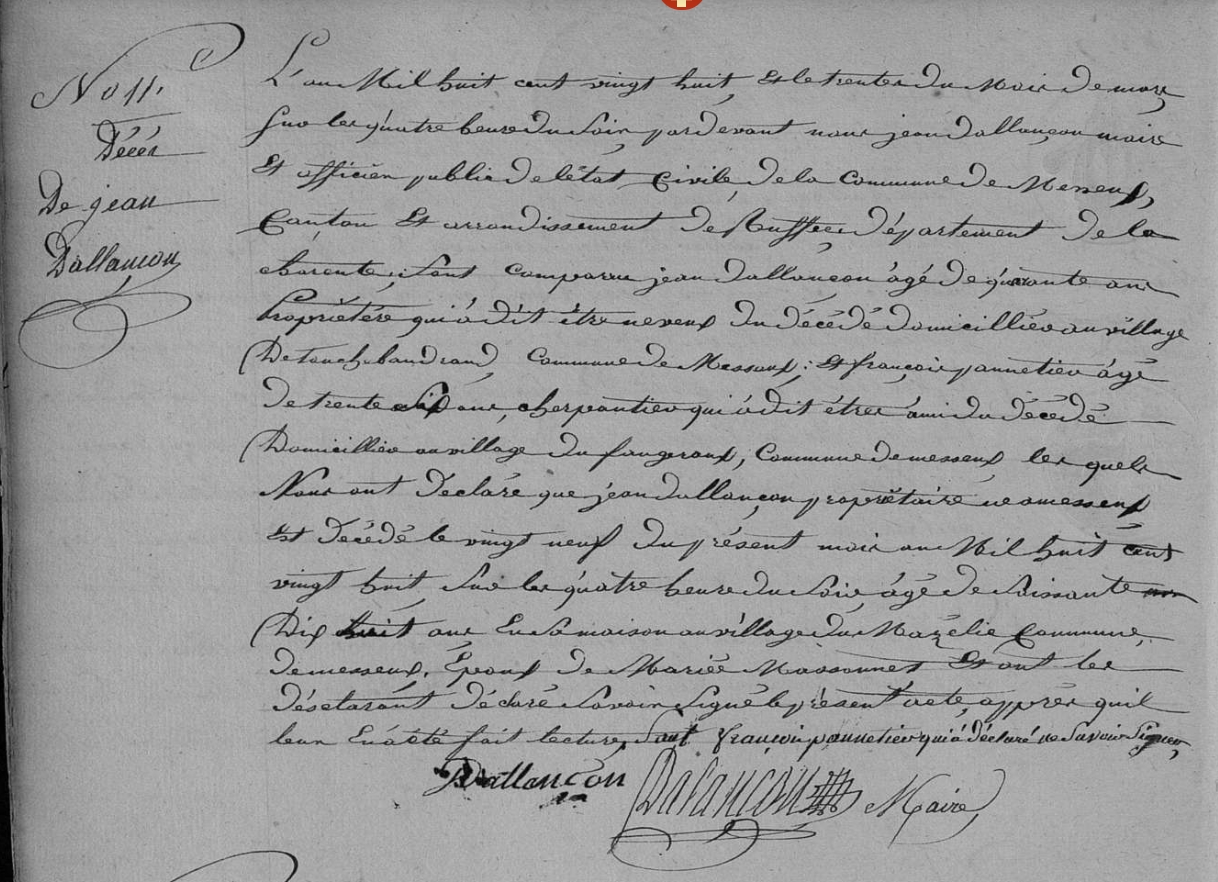 No 11.
Décés
De jean
Dallancon
L'an Mil huit cent vingt huit, Et le trente du Mois de mars
sur les quatre heure du Soir par devant nous jean dallançon maire
Et officier public De l'êtat Civile, de la Commune de Messeux,
Canton Et arrondissement de Ruffec département de la
charente, Sont Comparu jean dallançon âgé de quarante ans
Propriêtére qui à dit être neveux du décédé domicilliér au village
De touchebaudrand, Commune de Messeux ; Et françois pannetier âgé
de trente Six ans, cherpantier qui à dit être ami du décédé
Domicillier au village du fougeroux, Commune de messeux les quels
Nous ont Déclaré que jean dallançon propriêtaire né a messeux
Est décédé le vingt neuf du présent mois an Mil huit cent
vingt huit, Sur les quatre heure du Soir, âgé de Soissante
Dix huit ans En Sa maison au village du Mazelie Commune
de messeux. Epoux de Mariée Massonnet Et ont les
désclarant déclaré Savoir Signé le présent acte apprés qu'il
leur En à été fait lecture, Sauf françois pannetier qui à déclaré ne Savoir Signer,
Dallançon Dalançon Maire